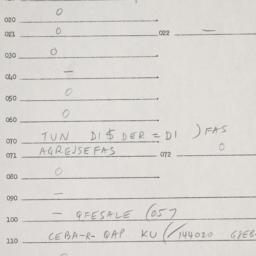 020 0
021 0 022 —
030 0
040 —
050 0
060 0
070 TUN DI$ DER = DI ) FAS
071 AGREJSEFAS 072 0
080 0
090 —
100 — QFESALE (057
110 CEBA-R- QAP KU (/144020